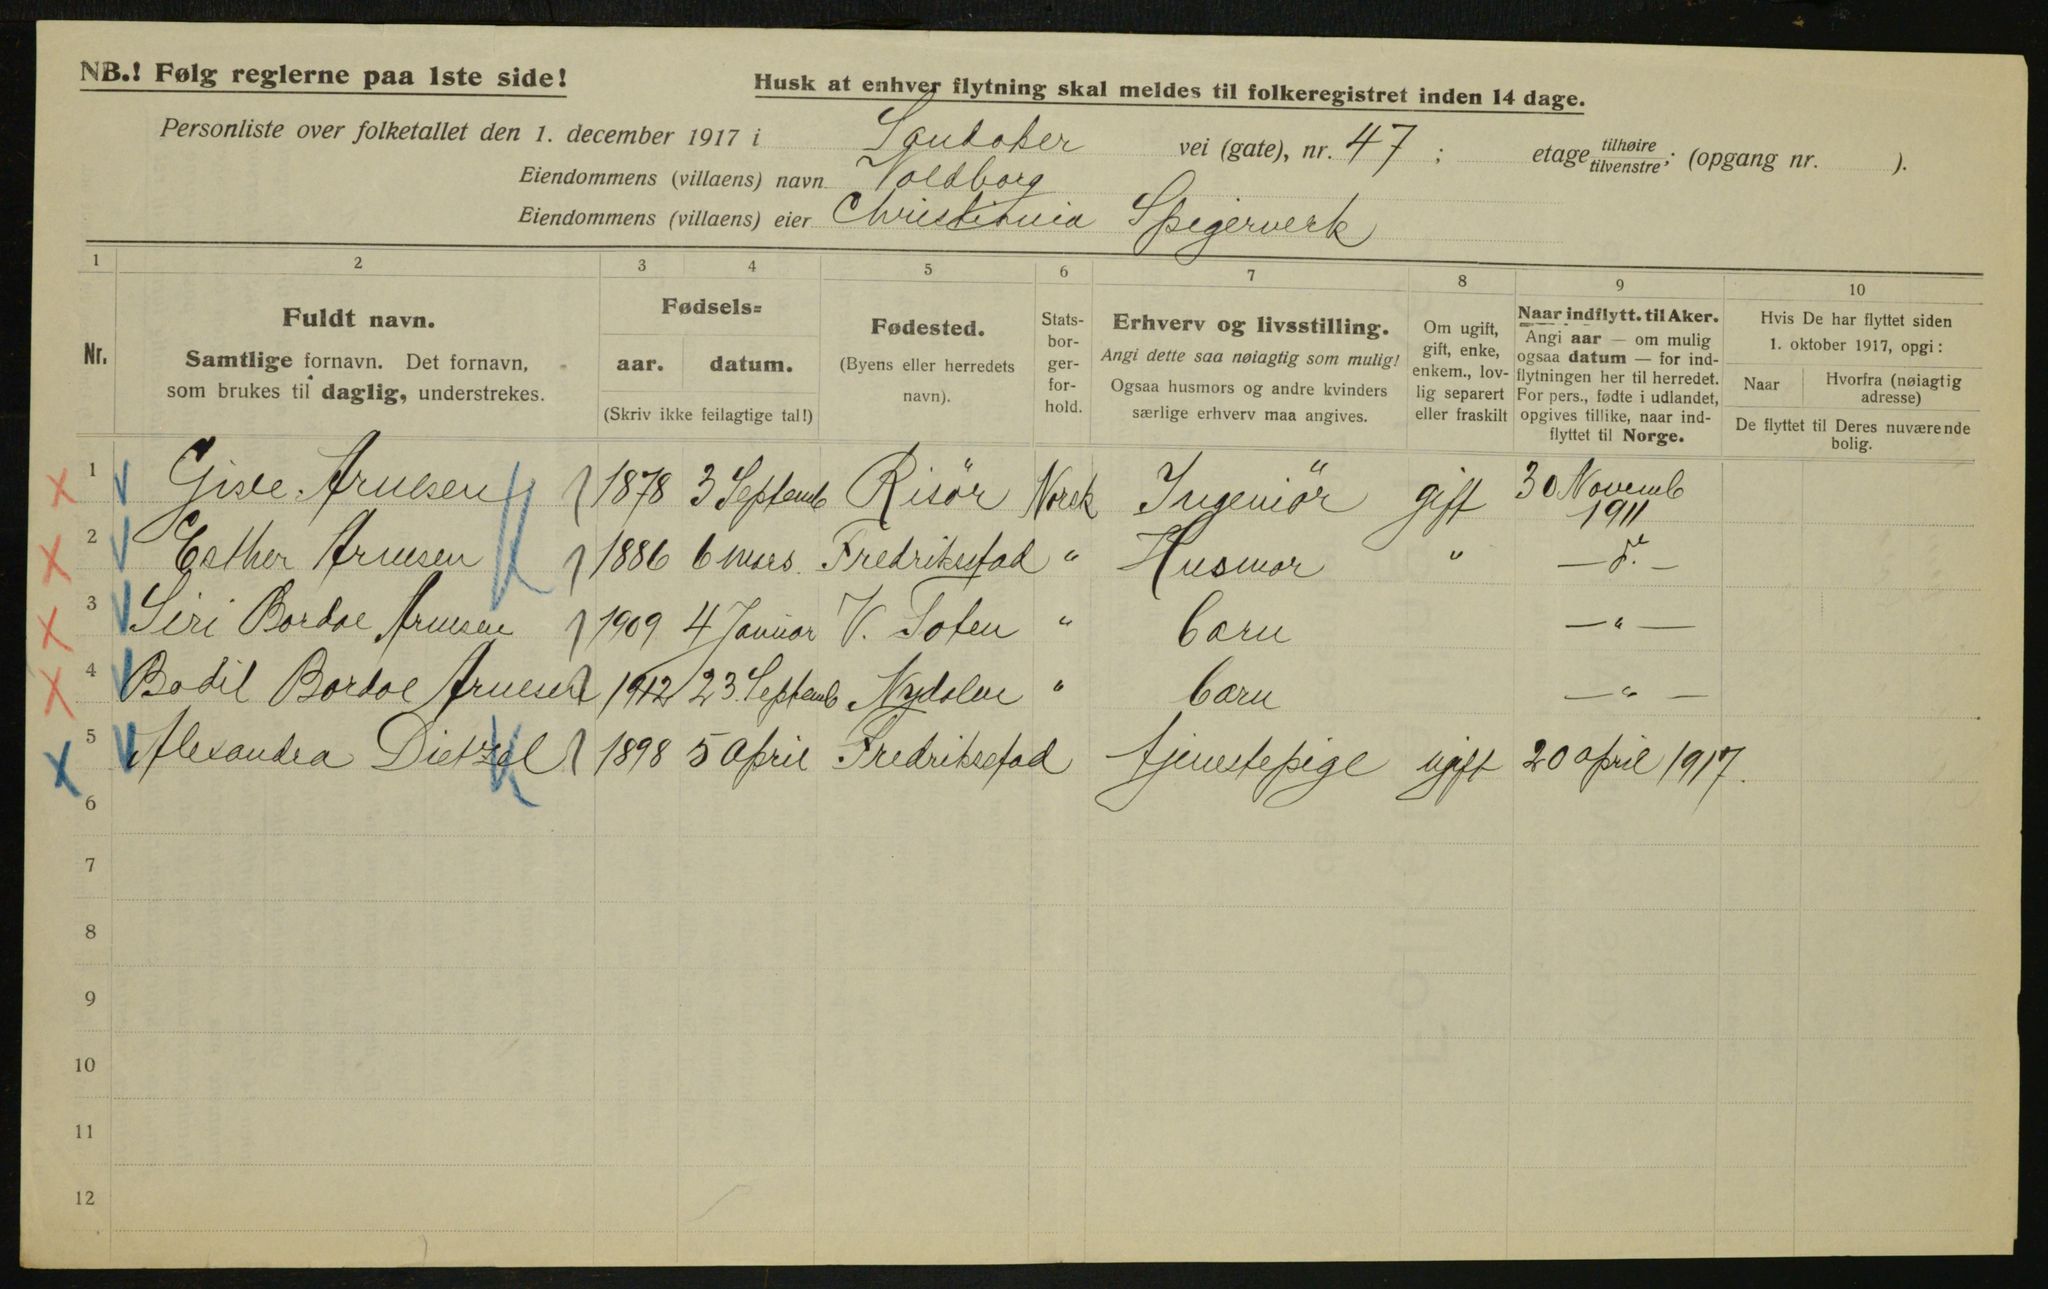 NB.! Følg reglerne paa 1ste side!
Husk at enhver flytning skal meldes til folkeregistret inden 14 dage.
Personliste over folketallet den 1. december 1917 i Sandaker vei (gate), nr. 47 ; etage tilhøire tilvenstre ; (opgang nr. ).
Eiendommens (villaens) navn Voldborg
Eiendommens (villaens) eier Christiania Spigerverk
1 2 3 4 5 6 7 8 9 10
Nr.
Fuldt navn.
Samtlige fornavn. Det fornavn,
som brukes til daglig, understrekes.
Fødsels=
aar. datum.
(Skriv ikke feilagtige tal!)
Fødested.
(Byens eller herredets
navn).
Stats-
bor-
ger-
for-
hold.
Erhverv og livsstilling.
Angi dette saa nøiagtig som mulig!
Ogsaa husmors og andre kvinders
særlige erhverv maa angives.
Om ugift,
gift, enke,
enkem., lov-
lig separert
eller fraskilt
Naar indflytt. til Aker.
Angi aar — om mulig
ogsaa datum — for ind-
flytningen her til herredet.
For pers., fødte i udlandet,
opgives tillike, naar ind-
flyttet til Norge.
Hvis De har flyttet siden
1. oktober 1917, opgi:
Naar Hvorfra (nøiagtig
adresse)
De flyttet til Deres nuværende
bolig.
1 Arnesen 1878 3 Septemb Risör Norsk Ingeniör gift 30 Novemb
1911
2 Esther Arnesen 1886 6 mars. Fredriksstad " Husmor " — do. —
3 Siri Bordoe Arnesen 1909 4 Januar V. Toten " barn — " —
4 Bodil Bordoe Arnesen 1912 23. Septemb Nydalen " barn — " —
5 Alexandra Dietzel 1898 5 April Fredriksstad tjenestepige ugift 20 april 1917.
6
7
8
9
10
11
12